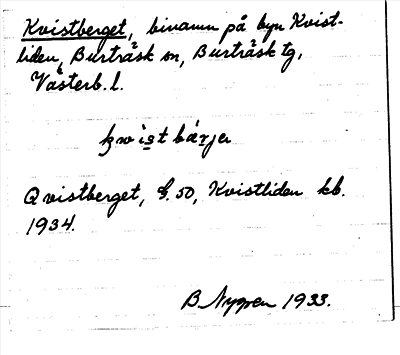 Kvistberget, binamn på byn Kvist-
liden, Burträsk sn, Burträsk tg,
Västerb. l.
kwistbärje
Qvistberget, G. 50, Kvistliden kb.
1934.
B. Nygren 1933.